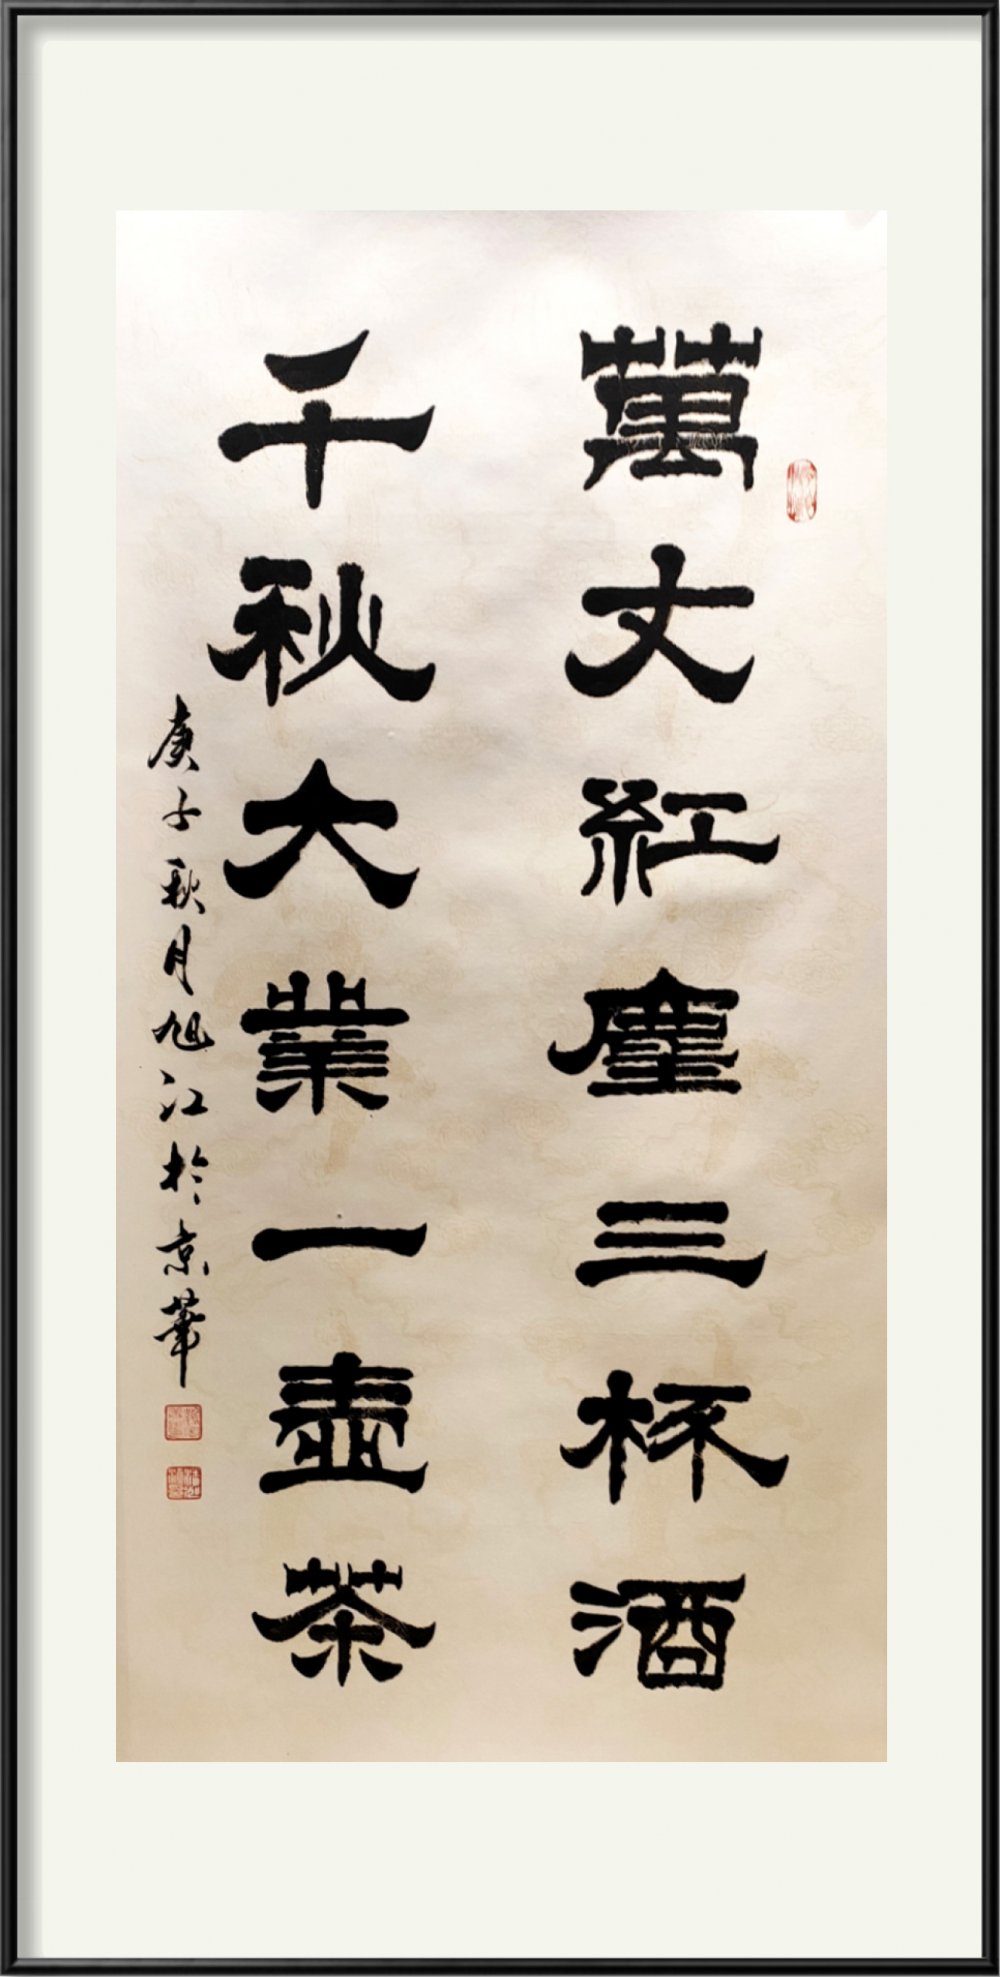 萬丈紅塵三杯酒
千秋大業一壺茶
庚子秋月旭江於京華